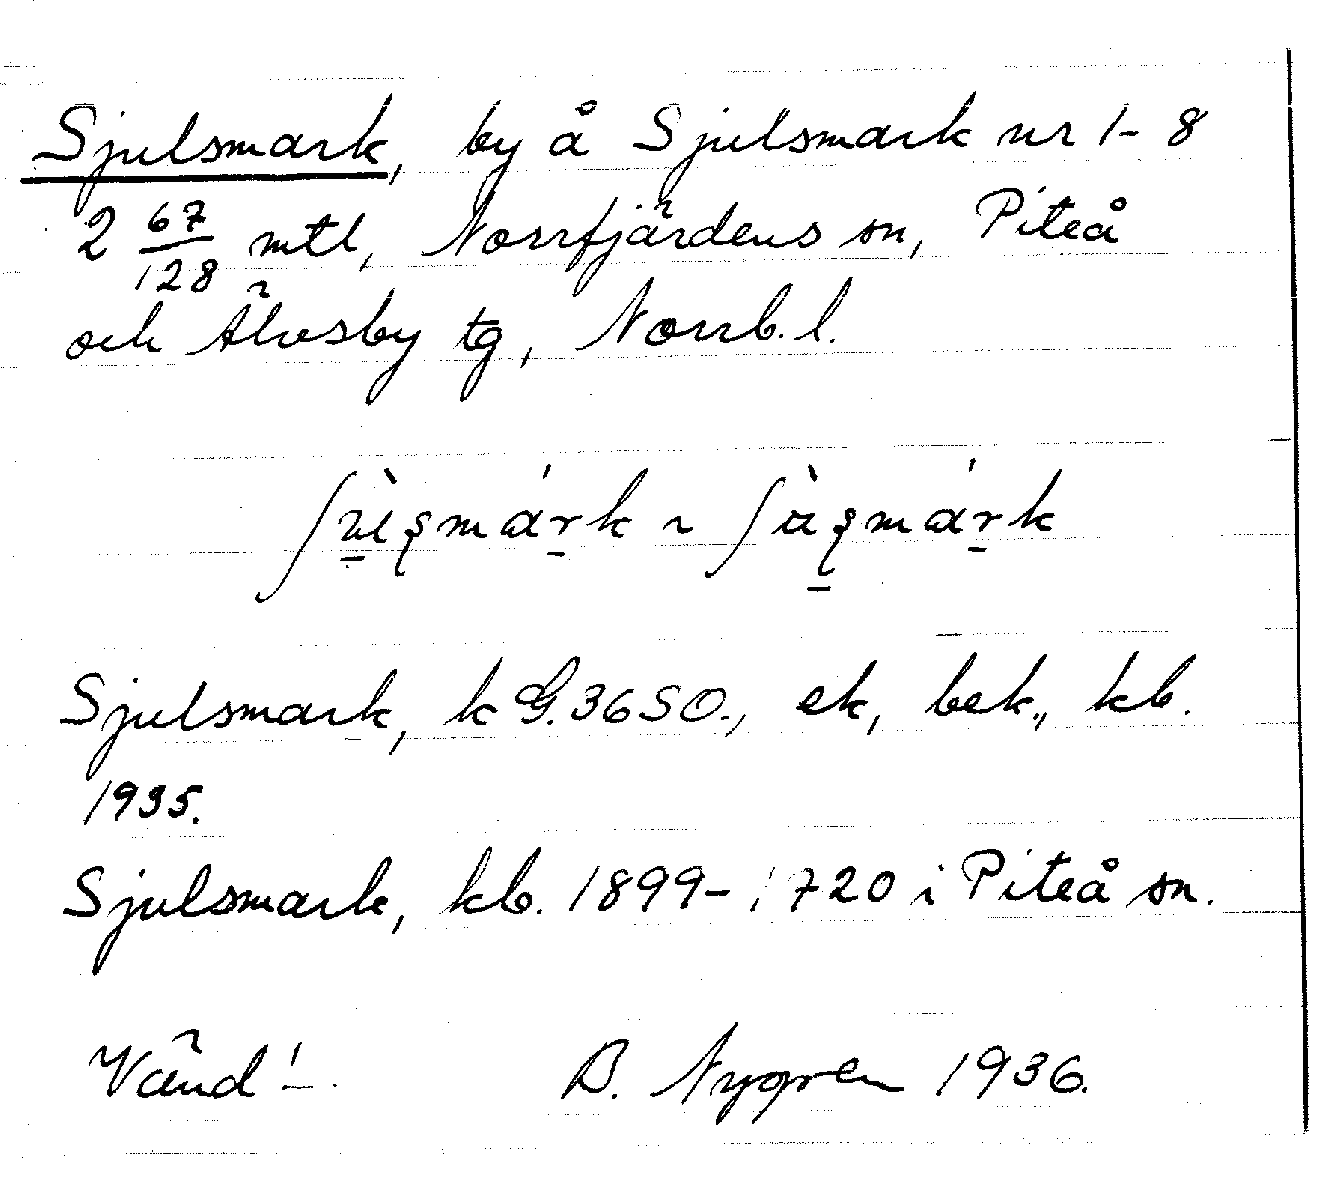 Sjulsmark, by å Sjulsmark nr 1-8
2 67/128 mtl, Norrfjärdens sn, Piteå
och Älvsby tg, Norrb. l.
Sjulsmark, k G.36SO., ek, bek., kb.
1935.
Sjulsmark, kb. 1899-1720 i Piteå sn.
Vänd! B. Nygren 1936.